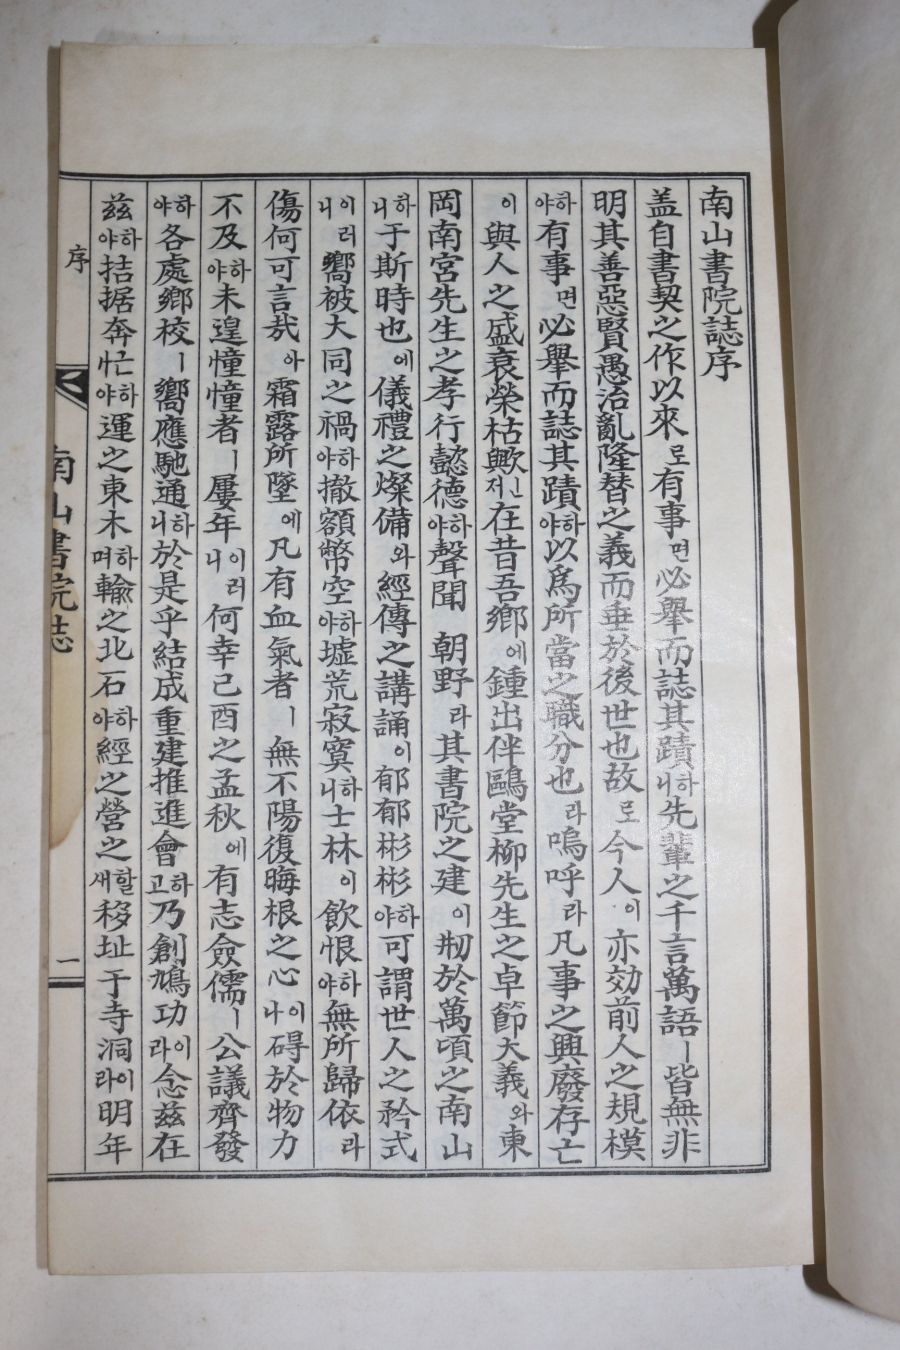 南山書院誌序
盖自書契之作以來로有事면必擧而誌其蹟하니先輩之千言萬語ㅣ皆無非
明其善惡賢愚治亂隆替之義而垂於後世也故로今人이亦効前人之規模
하야有事면必擧而誌其蹟하야以爲所當之職分也라嗚呼라凡事之興廢存亡
이與人之盛衰榮枯歟인저在昔吾鄕에鍾出伴鷗堂柳先生之卓節大義와東
岡南宮先生之孝行懿德하야聲聞 朝野라其書院之建이刱於萬頃之南山
하니于斯時也에儀禮之燦備와經傳之講誦이郁郁彬彬하야可謂世人之矜式
이러니嚮被大同之禍하야撤額幣空하야墟荒寂寞하니士林이飮恨하야無所歸依라
傷何可言哉아霜露所墜에凡有血氣者ㅣ無不陽復晦根之心이나碍於物力
不及하야未遑憧憧者ㅣ屢年이러니何幸己酉之孟秋에有志僉儒ㅣ公議齊發
하야各處鄕校ㅣ嚮應馳通하니於是乎結成重建推進會하고乃創鳩功이라念兹在
兹하야拮据奔忙하야運之東木하며輸之北石하야經之營之할새移址于寺洞이라明年
序
南山書院誌
一